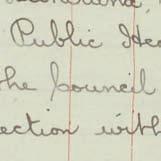 Public Hea
the Council
ection with